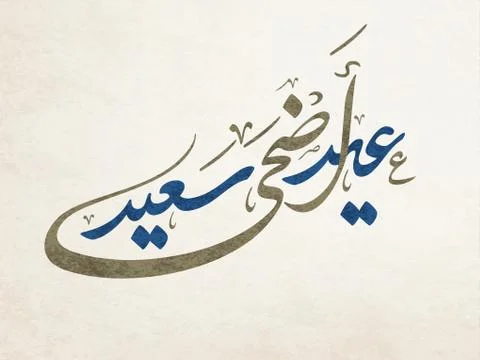 عيد أضحى سعيد